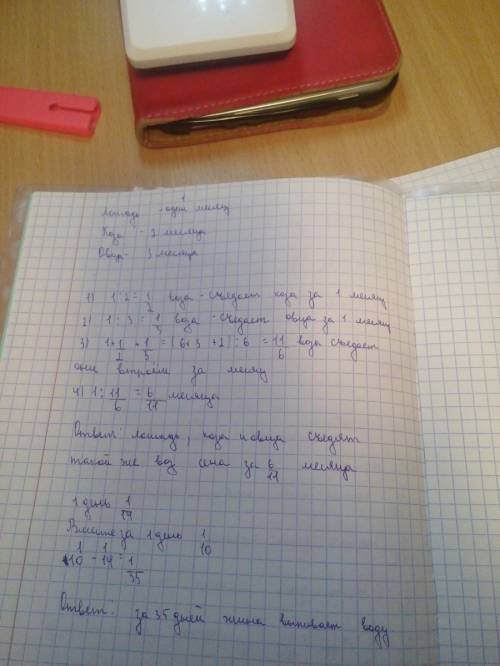 Лошадь - один месяц
Коза - 2 месяца
Овца - 3 месяца
1) 1 : 2 = 1/2 воза - съедает коза за 1 месяц
2) 1 : 3 = 1/3 воза - съедает овца за 1 месяц
3) 1 + 1/2 + 1/3 = (6 + 3 + 2) : 6 = 11/6 воза съедает
они втроём за месяц
4) 1 : 11/6 = 6/11 месяца
Ответ: лошадь, коза и овца съедят
такой же воз сена за 6/11 месяца
1 день 1/14
Вместе за 1 день 1/10
1/10 - 1/14 = 1/35
Ответ: за 35 дней жена выпивает воду